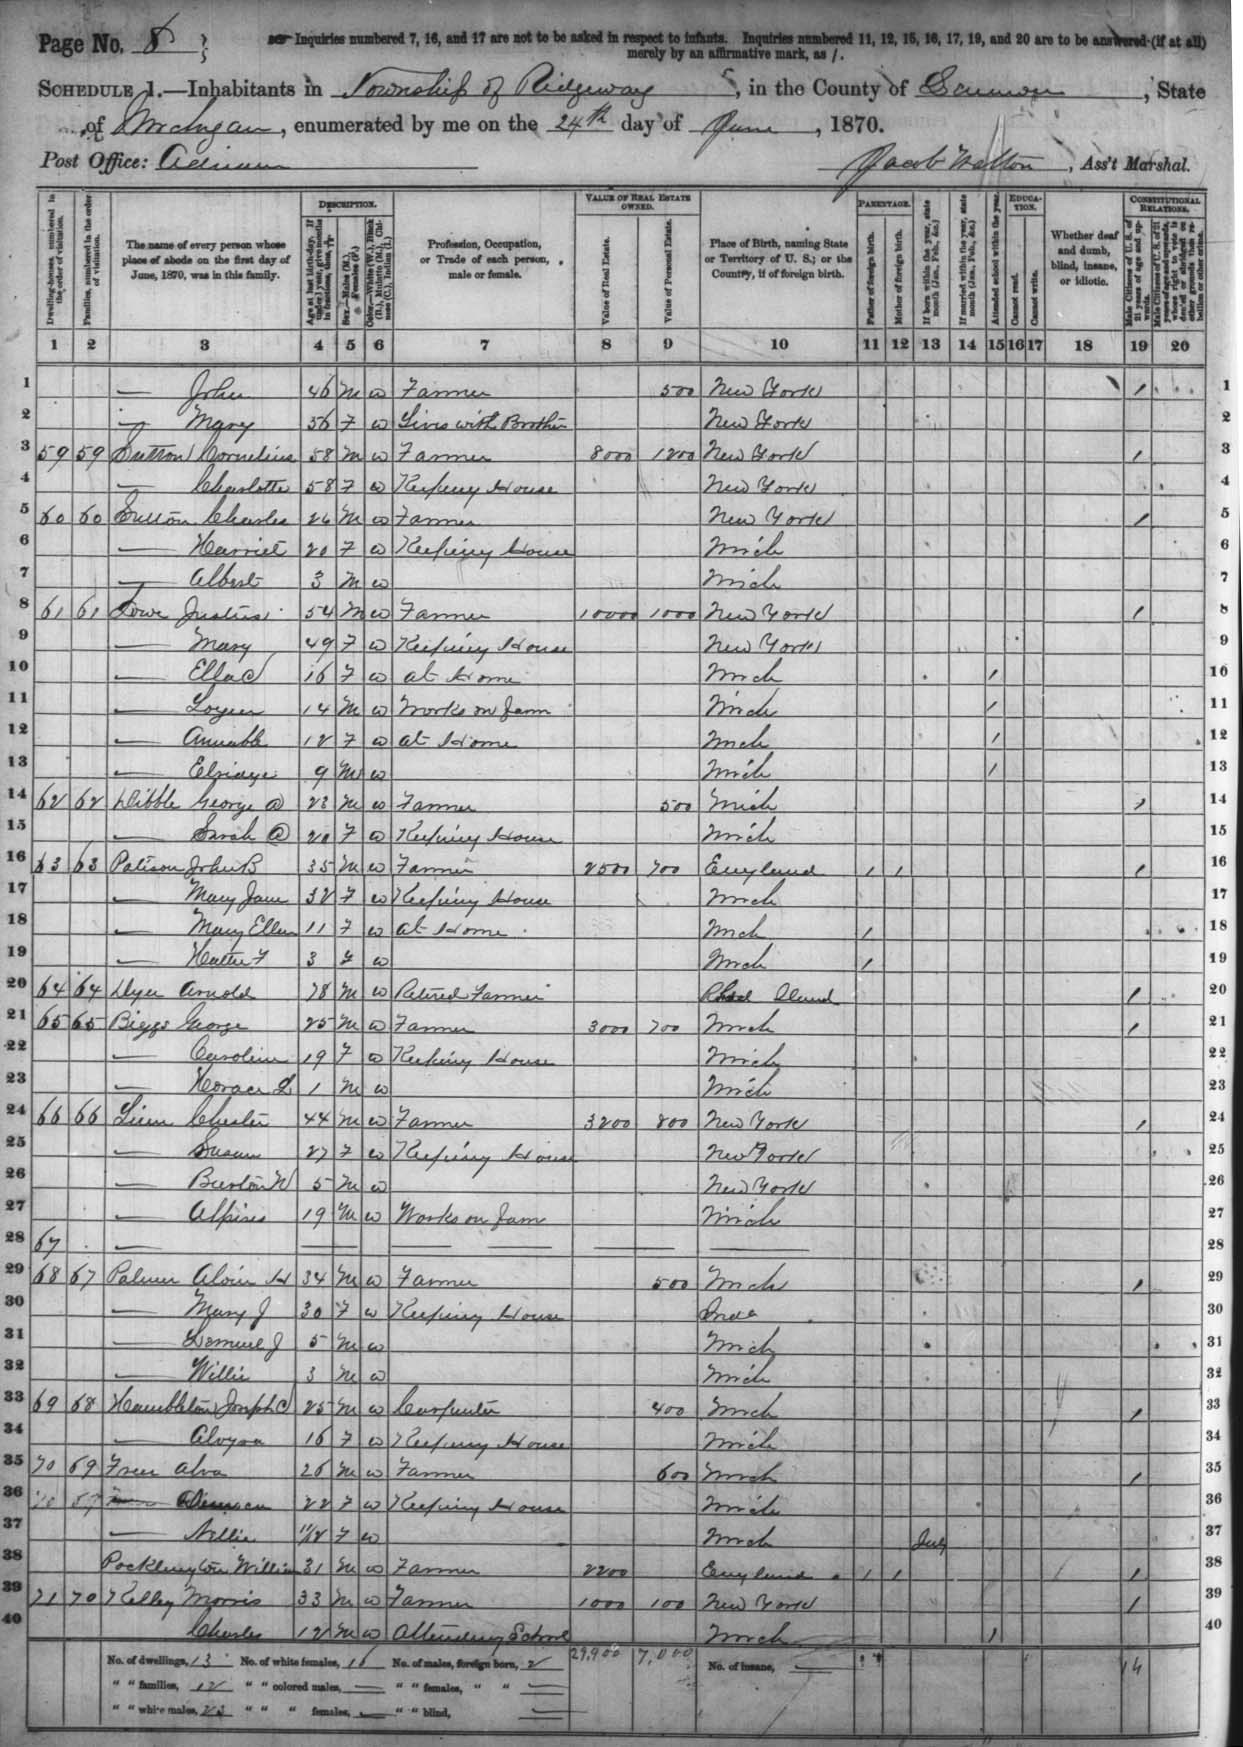 Page No. 8
Inquiries numbered 7, 16, and 17 are not to be asked in respect to infants. Inquiries numbered 11, 12, 15, 16, 17, 19, and 20 are to be answered (if at all)
merely by an affirmative mark, as /.
SCHEDULE 1.—Inhabitants in Township of Ridgeway, in the County of Lenawee, State
of Michigan, enumerated by me on the 24th day of June, 1870.
Post Office: Adrian Jacob Walton, Ass't Marshal.
DESCRIPTION. VALUE OF REAL ESTATE OWNED. PARENTAGE. EDUCATION. CONSTITUTIONAL RELATIONS.
Dwelling-houses, numbered in the order of visitation.
Families, numbered in the order of visitation.
The name of every person whose place of abode on the first day of June, 1870, was in this family.
Age at last birth-day. If under 1 year, give months in fractions, thus,
Sex.—Males (M.), Females (F.)
Color.—White (W.), Black (B.), Mulatto (M.), Chinese (C.), Indian (I.)
Profession, Occupation, or Trade of each person, male or female.
Value of Real Estate.
Value of Personal Estate.
Place of Birth, naming State or Territory of U. S.; or the Country, if of foreign birth.
Father of foreign birth.
Mother of foreign birth.
If born within the year, state month (Jan., Feb., &c.)
If married within the year, state month (Jan., Feb., &c.)
Attended school within the year.
Cannot read.
Cannot write.
Whether deaf and dumb, blind, insane, or idiotic.
Male Citizens of U. S. of 21 years of age and upwards.
Male Citizens of U. S. of 21 years of age and upwards, whose right to vote is denied or abridged on other grounds than rebellion or other crime.
1 2 3 4 5 6 7 8 9 10 11 12 13 14 15 16 17 18 19 20
1 — John 46 M W Farmer 500 New York / 1
2 — Mary 56 F W Lives with Brother New York 2
3 59 59 Sutton Cornelius 58 M W Farmer 8000 1200 New York / 3
4 — Charlotte 58 F W Keeping House New York 4
5 60 60 Sutton Charles 26 M W Farmer New York / 5
6 — Harriet 20 F W Keeping House Mich 6
7 — Albert 3 M W Mich 7
8 61 61 Lowe Justus 54 M W Farmer 10000 1000 New York / 8
9 — Mary 49 F W Keeping House New York 9
10 — Ella 16 F W at Home Mich / 10
11 — 14 M W Works on farm Mich / 11
12 — 12 F W at Home Mich / 12
13 — 9 M W Mich / 13
14 62 62 Dibble George A 23 M W Farmer 500 Mich / 14
15 — Sarah A 20 F W Keeping House Mich 15
16 63 63 Patison John B 35 M W Farmer 2500 700 England / / / 16
17 — Mary Jane 32 F W Keeping House Mich 17
18 — Mary Ellen 11 F W at Home Mich / 18
19 — Hattie F 3 F W Mich / 19
20 64 64 Dyer Arnold 78 M W Retired Farmer Rhod Iland / 20
21 65 65 Biggs George 25 M W Farmer 3000 700 Mich / 21
22 — Caroline 19 F W Keeping House Mich 22
23 — Horace L 1 M W Mich 23
24 66 66 Chester 44 M W Farmer 3200 800 New York / 24
25 — Susan 27 F W Keeping House New York 25
26 — Burton W 5 M W New York 26
27 — 19 M W Works on farm Mich 27
28 67 — — — — — — — 28
29 68 67 Palmer Alvin H 34 M W Farmer 500 Mich / 29
30 — Mary J 30 F W Keeping House Inda 30
31 — Lemuel J 5 M W Mich 31
32 — Willie 3 M W Mich 32
33 69 68 Hambleton Joseph C 25 M W Carpenter 400 Mich / 33
34 — 16 F W Keeping House Mich 34
35 70 69 Alva 26 M W Farmer 600 Mich / 35
36 — 22 F W Keeping House Mich 36
37 — Nellie 11/12 F W Mich July 37
38 Pocklington William 31 M W Farmer 2200 England / / / 38
39 71 70 Kelley Morris 33 M W Farmer 1000 100 New York / 39
40 Charles 12 M W Attending School Mich / 40
No. of dwellings, 13 No. of white females, 16 No. of males, foreign born, 2 29,900 7,000 No. of insane, — 14
" " families, 12 " " colored males, — " " females, " " —
" " white males, 23 " " " females, — " " blind, —